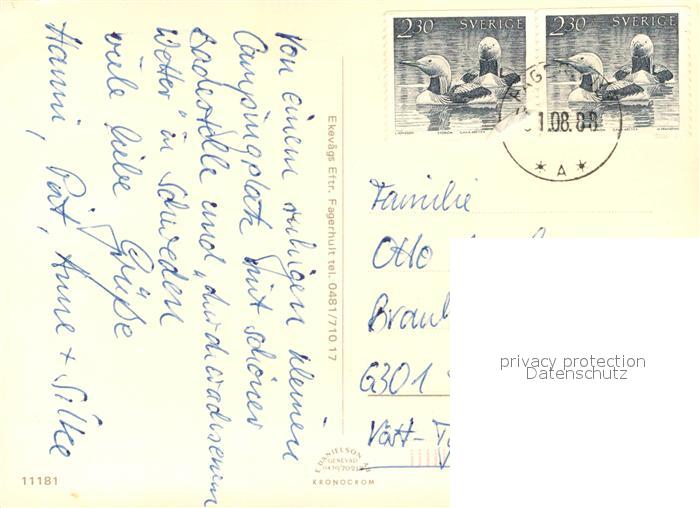 Von einem ruhigen kleinen
Campingplatz mit schöner
Badestelle und „durchwachsenem
Wetter" in Schweden
viele liebe Grüße
Hanni, Pit, Anne + Silke
Ekevågs Eftr. Fagerhult tel. 0481/710 17
2.30 SVERIGE
2.30 SVERIGE
1.08.88
* A *
Familie
Otto
6301
privacy protection
Datenschutz
E. DANIELSON AB
GENEVAD
KRONOCROM
11181